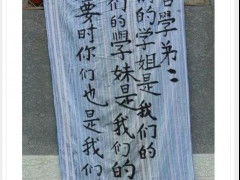 學弟：
的学姐是我们的
们的學妹是我们的
要时你们也是我们